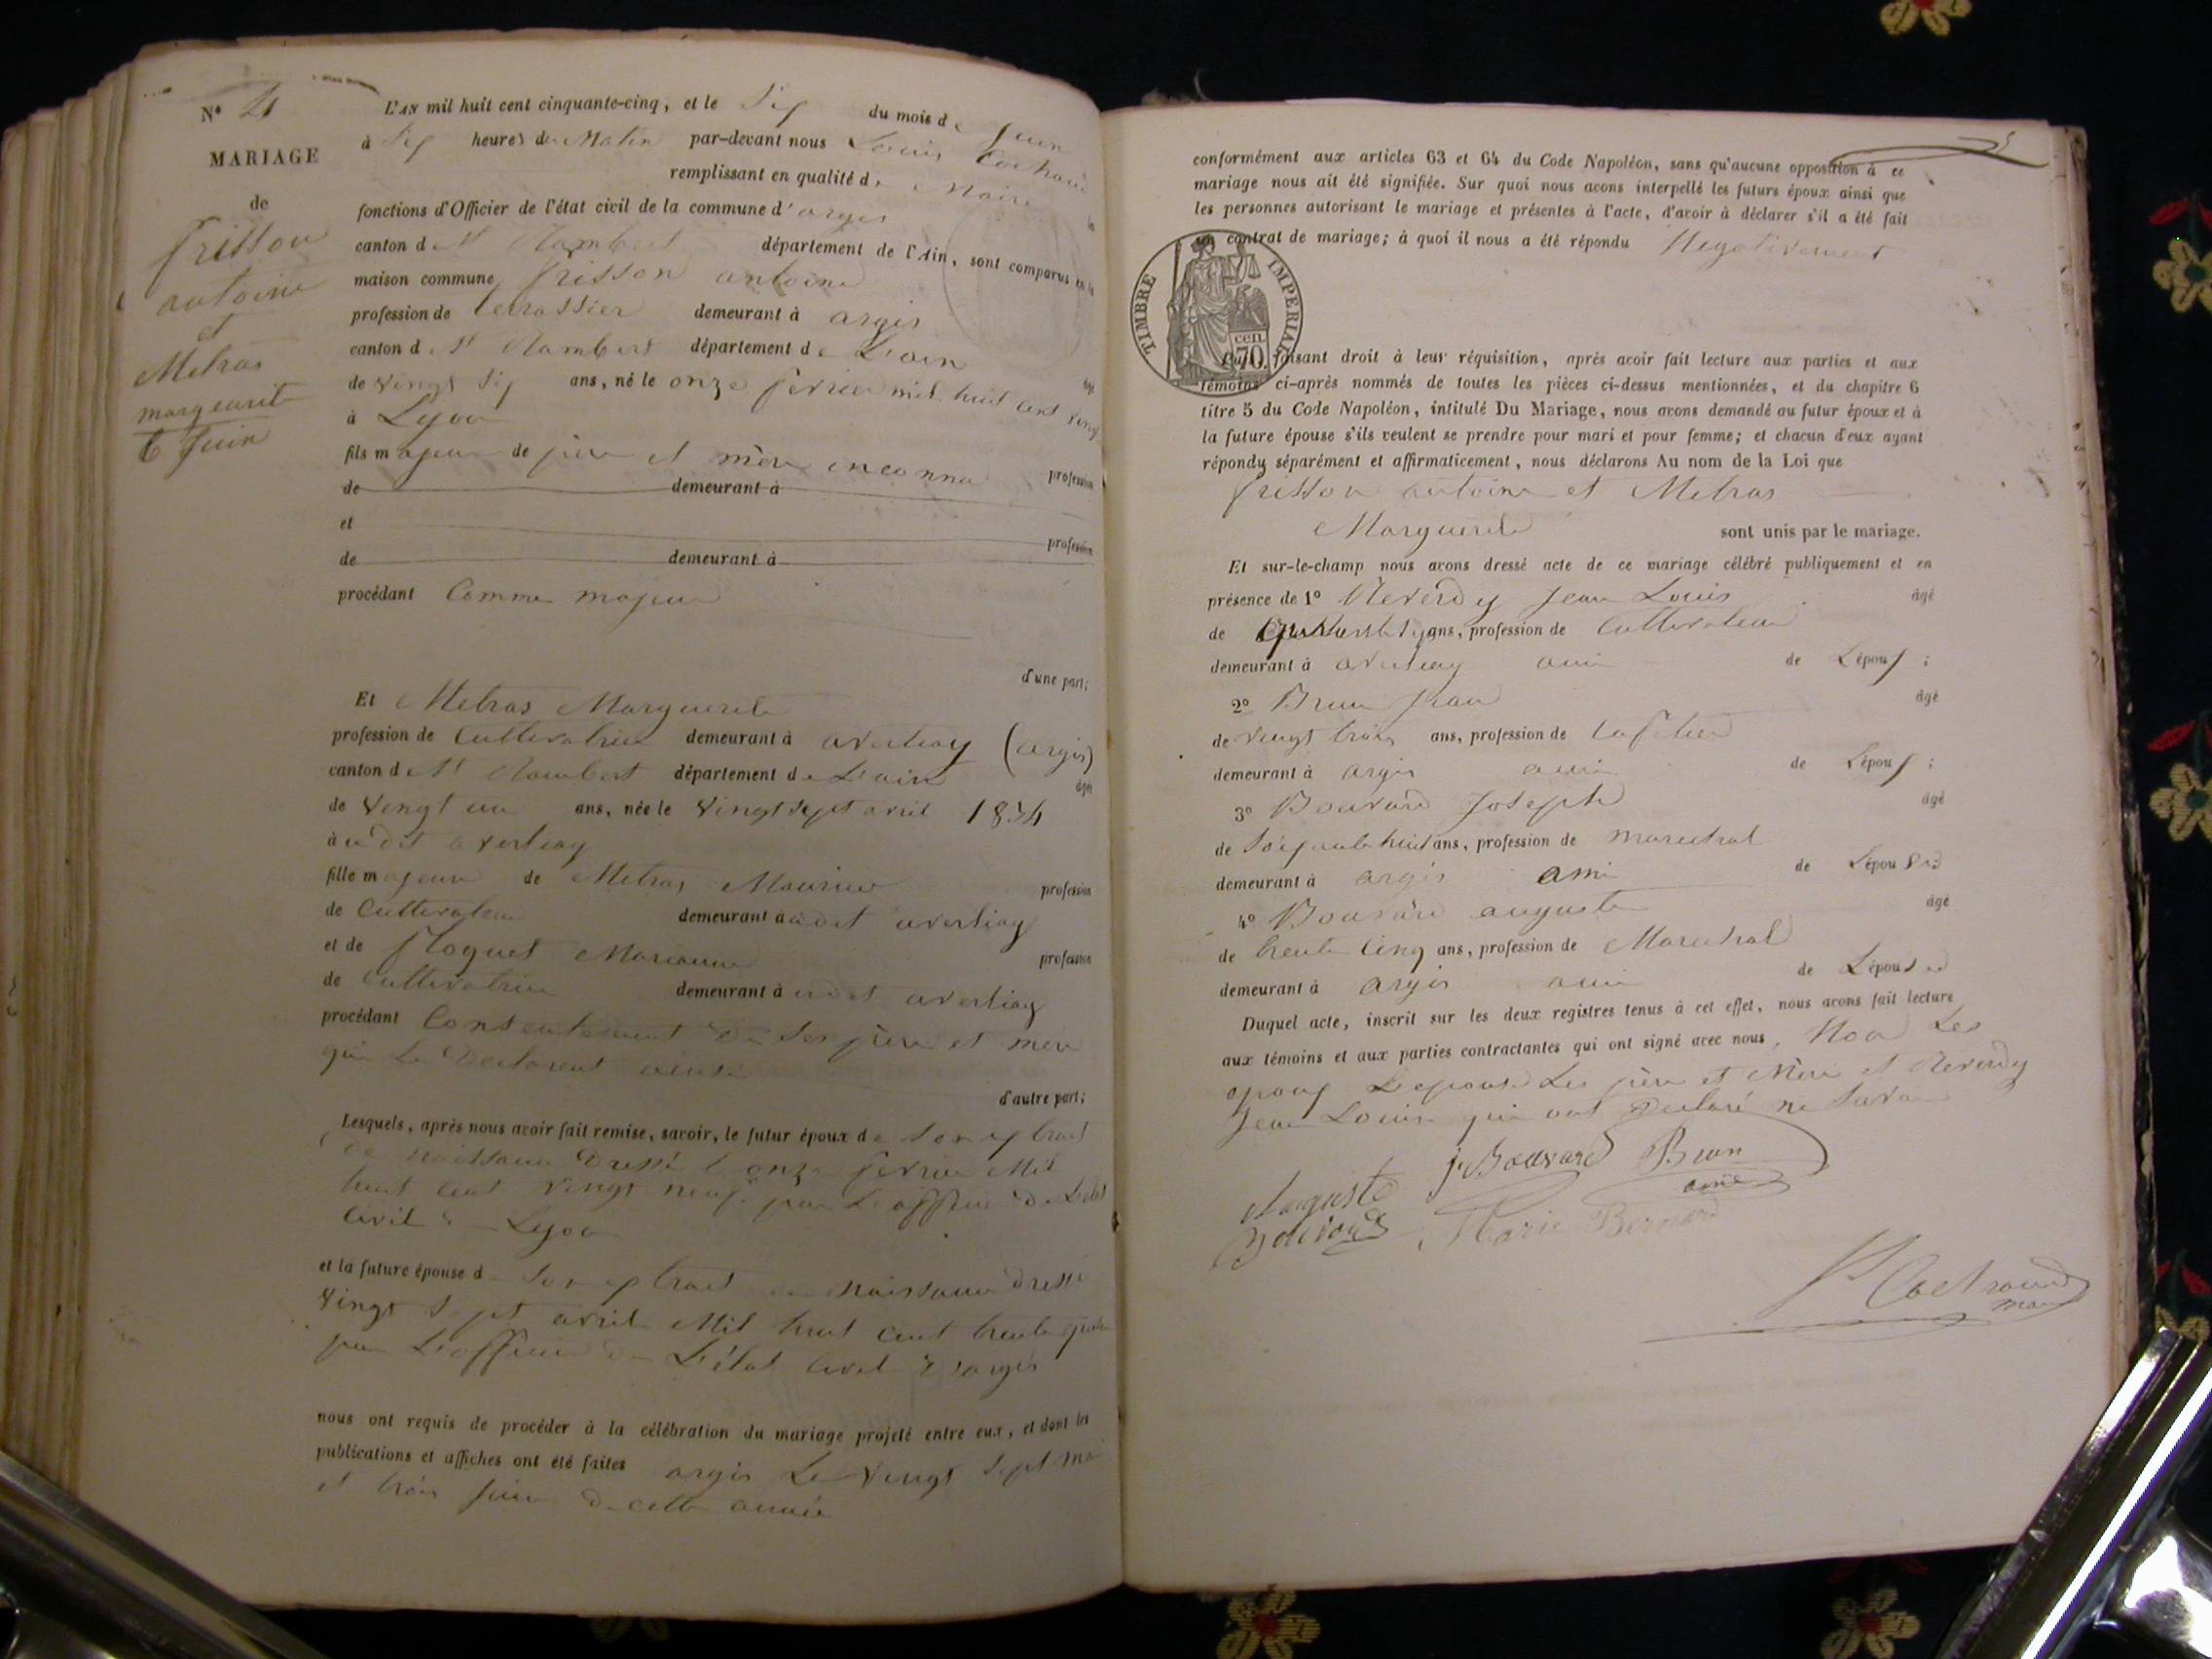 N° 4
MARIAGE
de
frisson
antoine
et
Metras
marguerite
6 Juin
L'AN mil huit cent cinquante-cinq, et le Six du mois de Juin
à Six heures du Matin par-devant nous Louis
remplissant en qualité de Maire les
fonctions d'Officier de l'état civil de la commune d'argis
canton de St Rambert département de l'Ain, sont comparus en la
maison commune frisson antoine
profession de terrassier demeurant à argis
canton de St Rambert département de L'ain âgé
de vingt Six ans, né le onze février mil huit cent vingt
à Lyon
fils majeur de père et mère inconnu profession
de demeurant à
et profession
de demeurant à
procédant Comme majeur
d'une part;
Et Metras Marguerite
profession de Cultivatrice demeurant à averliay (argis)
canton de St Rambert département de L'ain âgé
de Vingt un ans, née le Vingt Sept avril 1834
à udit averliay
fille majeure de Metras Maurice profession
de Cultivateur demeurant à udit averliay
et de floquet Marianne profession
de Cultivatrice demeurant à udit averliay
procédant Consentement de Ses père et mère
qui Le Déclarent ainsi
d'autre part;
Lesquels, après nous avoir fait remise, savoir, le futur époux de Son extrait
de naissance Dressé le onze février Mil
huit cent vingt neuf par L'officier de L'état
Civil de Lyon
et la future épouse de Son extrait de naissance dressé
Vingt Sept avril Mil huit cent trente quatre
par L'officier de L'état Civil d'argis
nous ont requis de procéder à la célébration du mariage projeté entre eux, et dont les
publications et affiches ont été faites argis Le Vingt Sept mai
et trois Juin de cette année
conformément aux articles 63 et 64 du Code Napoléon, sans qu'aucune opposition à ce
mariage nous ait été signifiée. Sur quoi nous avons interpellé les futurs époux ainsi que
les personnes autorisant le mariage et présentes à l'acte, d'avoir à déclarer s'il a été fait
un contrat de mariage; à quoi il nous a été répondu Négativement
TIMBRE IMPERIAL
70 cen
faisant droit à leur réquisition, après avoir fait lecture aux parties et aux
témoins ci-après nommés de toutes les pièces ci-dessus mentionnées, et du chapitre 6
titre 5 du Code Napoléon, intitulé Du Mariage, nous avons demandé au futur époux et à
la future épouse s'ils veulent se prendre pour mari et pour femme; et chacun d'eux ayant
répondu séparément et affirmativement, nous déclarons Au nom de la Loi que
frisson antoine et Metras
Marguerite sont unis par le mariage.
Et sur-le-champ nous avons dressé acte de ce mariage célébré publiquement et en
présence de 1° Reverdy Jean Louis âgé
de ans, profession de Cultivateur
demeurant à averliay ami de L'époux ;
2° Brun Jean âgé
de vingt trois ans, profession de
demeurant à argis ami de L'époux ;
3° Bouvard Joseph âgé
de Soixante huit ans, profession de marechal
demeurant à argis ami de L'épouse
4° Bouvard auguste âgé
de trente cinq ans, profession de Marechal
demeurant à argis ami de L'épouse
Duquel acte, inscrit sur les deux registres tenus à cet effet, nous avons fait lecture
aux témoins et aux parties contractantes qui ont signé avec nous, Non Les
époux L'épouse Les père et Mère et Reverdy
Jean Louis qui ont déclaré ne Savoir
j. Bouvard Brun
Auguste
Bouvard Marie Bernard
maire